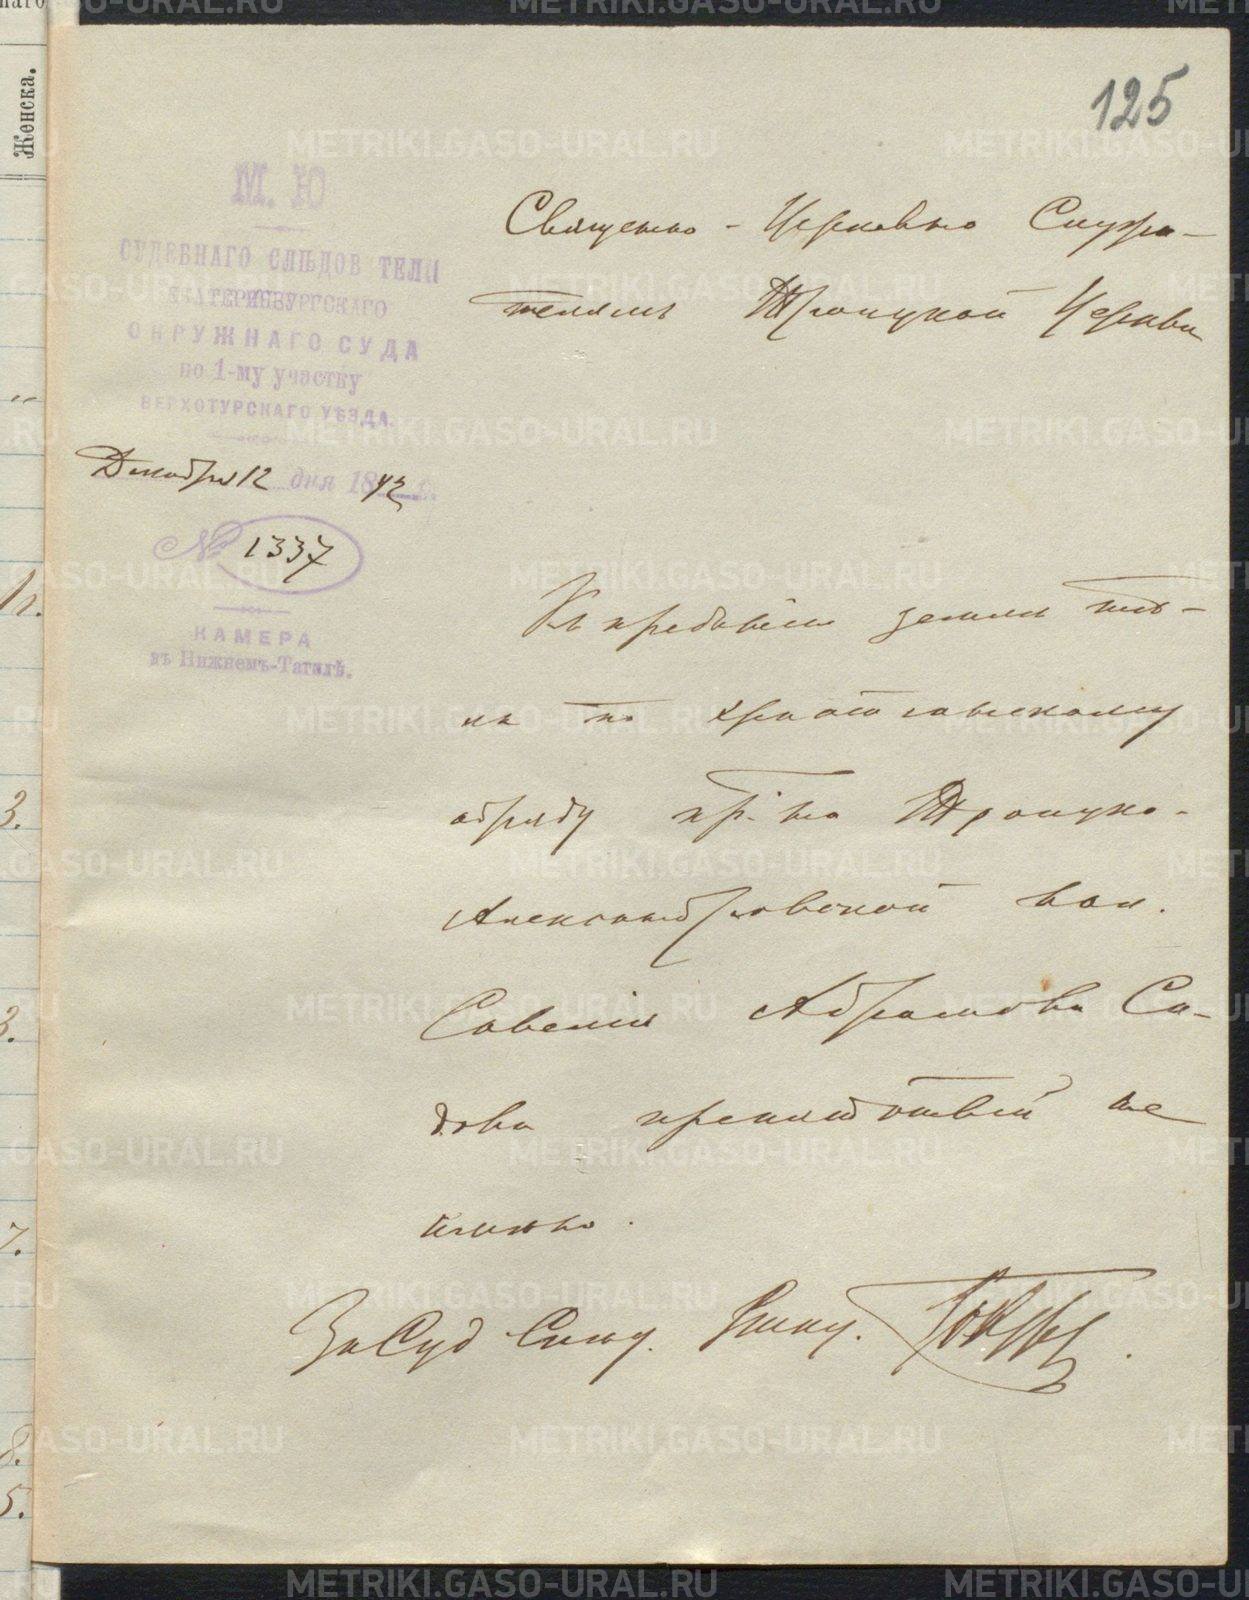 125
М. Ю
СУДЕБНАГО СЛѢДОВ ТЕЛЯ
ЕКАТЕРИНБУРГСКАГО
ОКРУЖНАГО СУДА
по 1-му участку
ВЕРХОТУРСКАГО УѢЗДА.
Декабря 12 дня 1892
№ 1337
КАМЕРА
въ Нижнемъ-Тагилѣ.
Священно-Церковно Служи-
телямъ Троицкой Церкви
Къ преданію землѣ тѣ-
ла по христіанскому
обряду кр-на Троицко-
Александровской вол.
Савелія Абрамова Са-
дова препятствій не
имѣю.
За Суд. Слѣд.
Женска.
METRIKI.GASO-URAL.RU